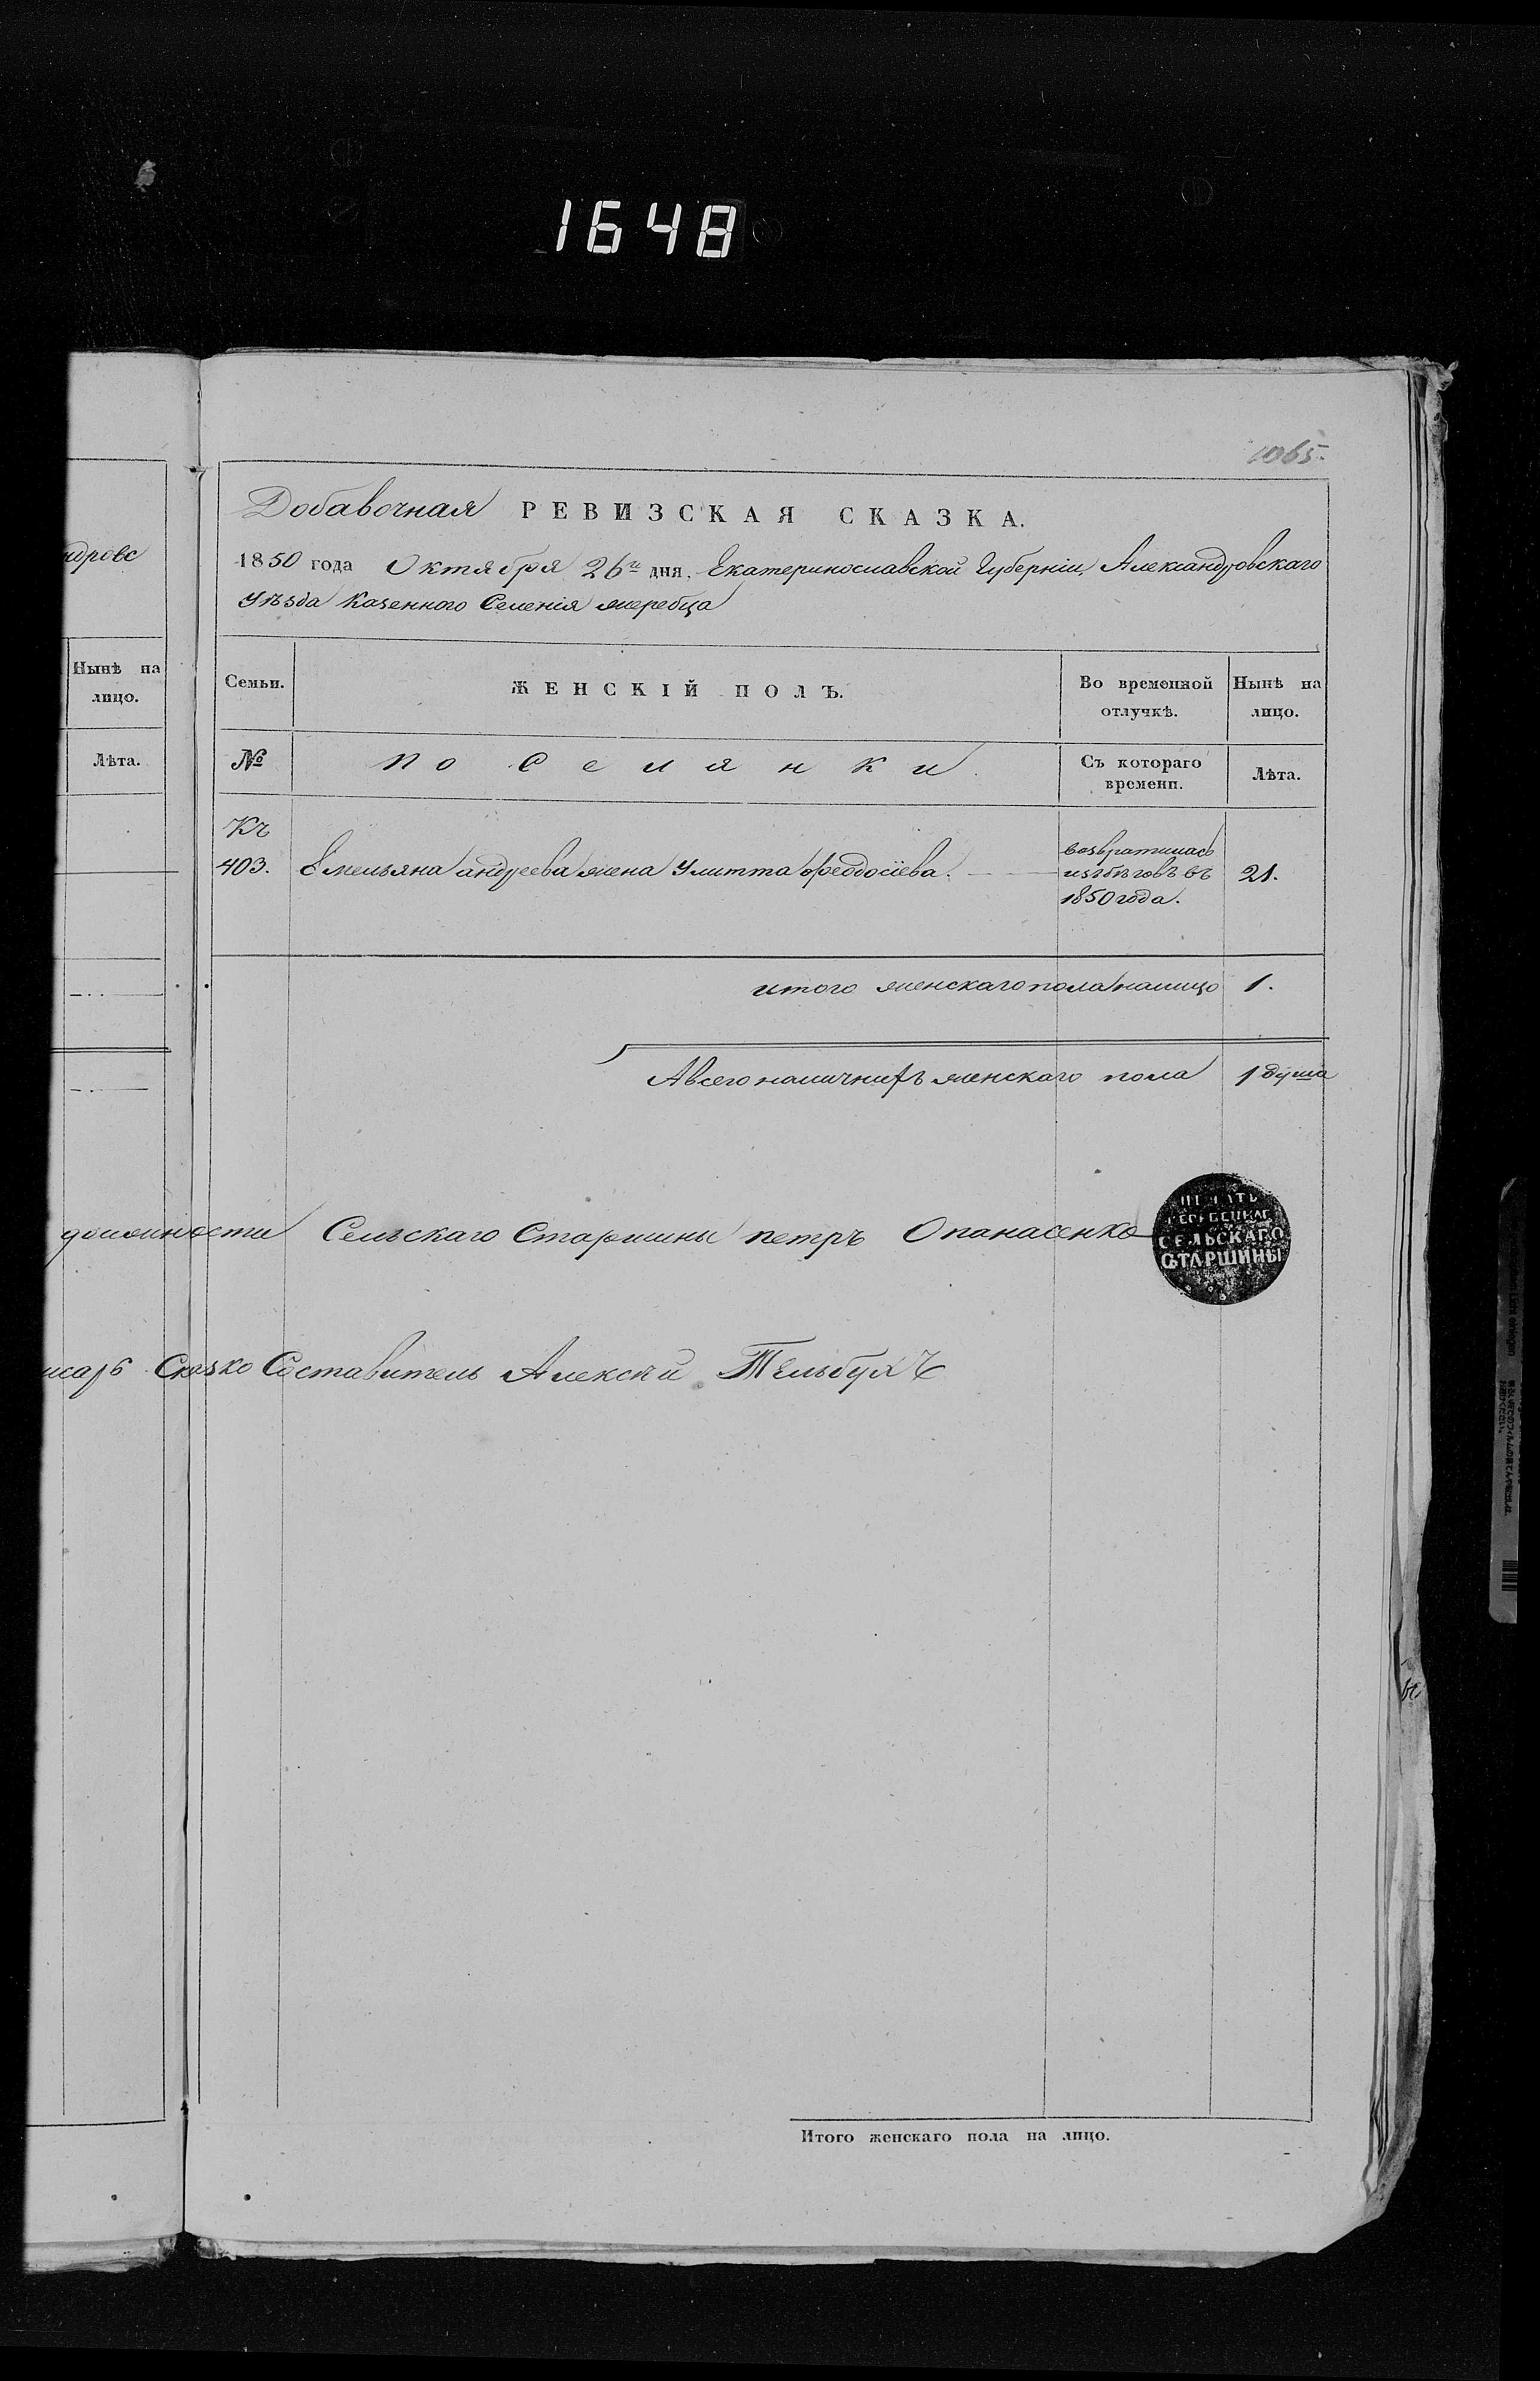 1648
1065.
Добавочная РЕВИЗСКАЯ СКАЗКА.
ндровс
1850 года Октября 26го дня, Екатеринославской Губерніи, Александровскаго
Уѣзда Казенного Селенія жеребца
Нынѣ на
лицо.
Лѣта.
Семьи.
ЖЕНСКІЙ ПОЛЪ.
Во временной
отлучкѣ.
Нынѣ на
лицо.
№
Поселянки
Съ котораго
времени.
Лѣта.
Къ
403. Емельяна андреева жена Улитта феодосіева.
возвратилась
изъ бѣговъ въ
1850 года.
21.
итого женскаго пола налицо 1.
А всего наличнихъ женскаго пола 1 душа
должности Сельскаго Старшины петръ Опанасенко
ПЕЧАТЬ
СЕЛЬСКАГО
СТАРШИНЫ
исарь Составитель Алексѣй Тельбухъ
Итого женскаго пола на лицо.